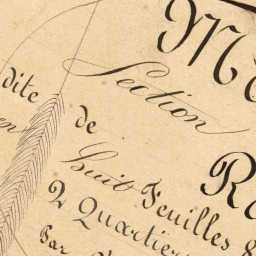 M
Section
dite de
en
Huit Feuilles &
R
2 Quartier
Par